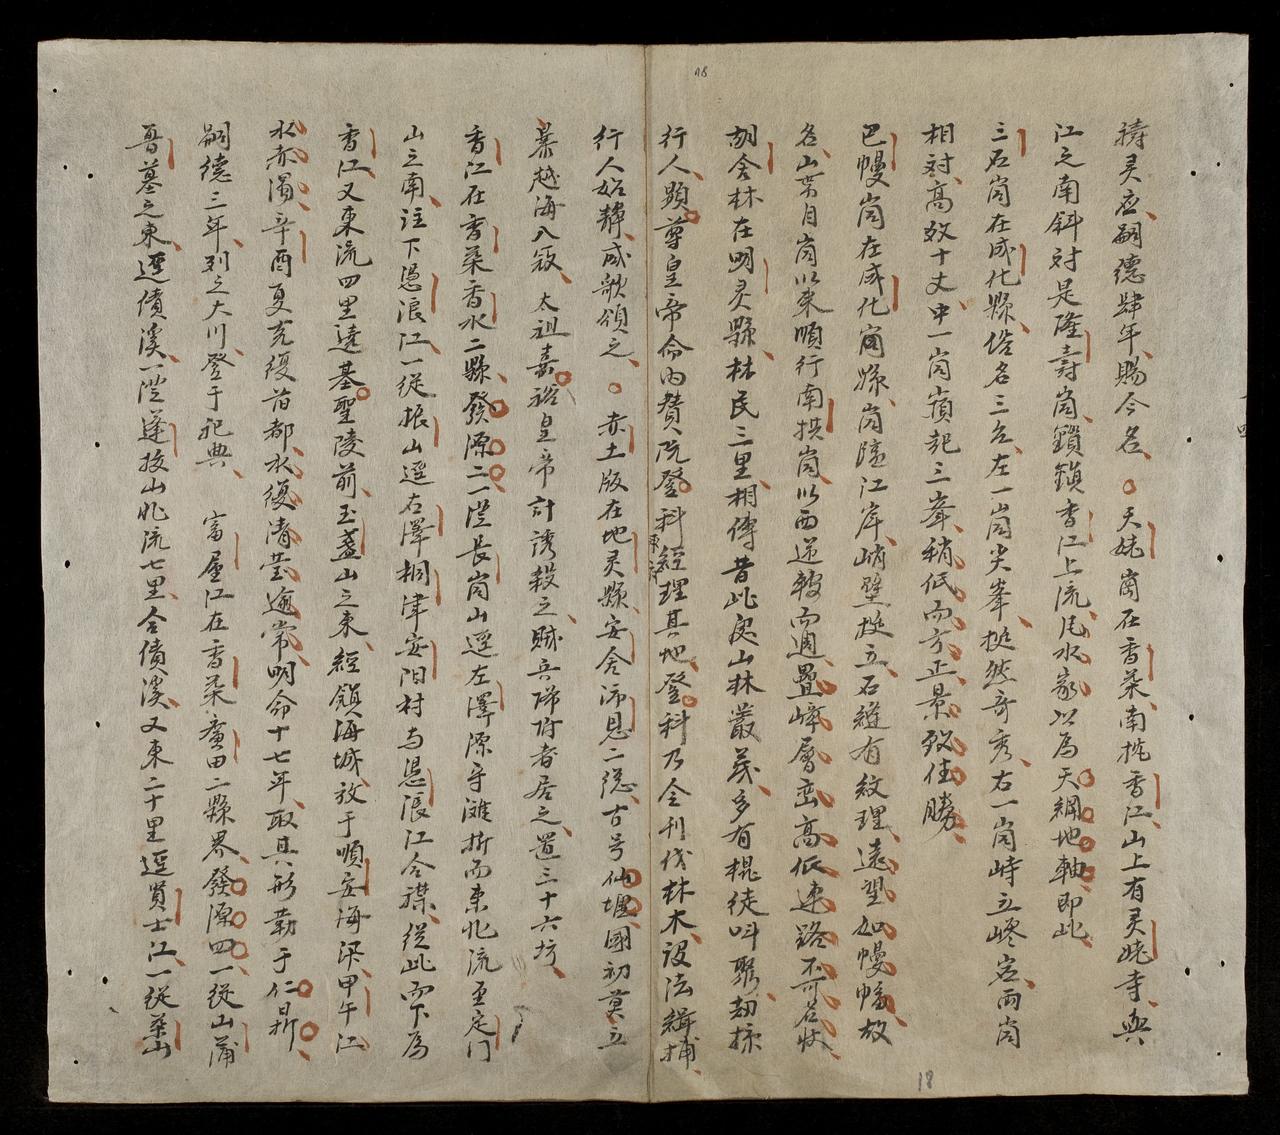 禱灵应嗣德肆年賜今名　○天姥崗在香茶南挹香江山上有灵姥寺與
江之南斜対是隆壽崗鎖鎮香江上流凡水家以為天綱地軸即此
三石崗在成化縣俗名三左一崗尖峯挺然奇秀右一崗峙立岩兩崗
相対高数十丈中一崗嶺起三峯稍低而方正景致佳勝
巴幔崗在成化縣崗隨江岸峭壁挺立石縫有紋理遠望如幔幡故
名山葉自崗以東順行南拱崗以西逆報而週疊嶂層巒高低連路不可名狀
胡舍林在明灵縣林民三里相傳昔此处山林叢茂多有棍徒呌聚刼掠
行人顕尊皇帝命内賛阮登科經理其地登科乃令刊伐林木設法緝捕
行人始静咸歌頌之　○赤土版在地灵縣安舍沛恩二总古号仙堀國初莫立
暴越海入寇太祖嘉裕皇帝計誘殺之賊兵歸附者居之置三十六坊
香江在香茶香水二縣發源二一從長崗山逕左澤源守灘折而東北流至定门
山之南注下遥浪江一從根山逕右澤桐津安阳村与遥浪江合襟從此而下為
香江又東流四里遶基聖陵前玉盞山之東經鎮海城放于順安海汛甲午江
水赤濁辛酉夏克復旧都水復清瑩逾常明命十七年取其形勒于仁鼎
嗣德三年列之大川登于祀典　富屋江在香茶廣田二縣界發源四一從山蒲
吾墓之東逕债溪一從蓬扳山北流七里合债溪又東二十里逕賢士江一從茶山